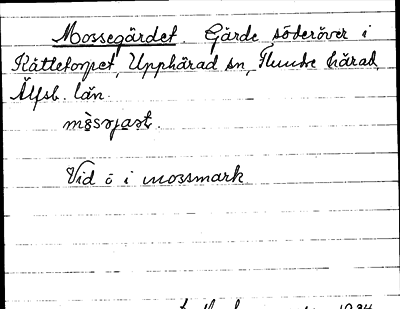 Mossegärdet. Gärde söderöver i
Kättetorpet, Upphärad sn, Flundre härad,
Älfsb. län.
Vid ö i mossmark